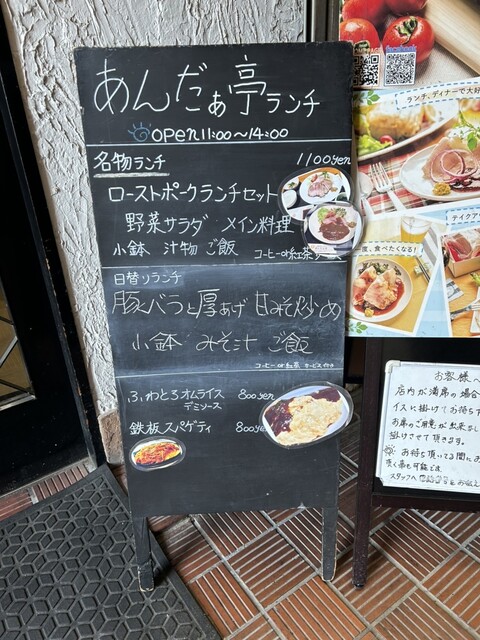 あんだぁ亭ランチ
OPEN 11:00〜14:00
名物ランチ 1100yen
ローストポークランチセット
野菜サラダ メイン料理
小鉢 汁物 ご飯 コーヒーor紅茶
日替りランチ
豚バラと厚あげ 甘みそ炒め
小鉢 みそ汁 ご飯
コーヒーor紅茶 サービス付き
ふわとろオムライス 800yen
デミソース
鉄板スパゲティ 800yen
facebook
ランチ、ディナーで大好
テイクア
度、食べたくなる!
お客様へ
店内が満席の場合
イスに掛けてお待ち下
お席のご用意が出来まし
掛けさせて頂きます。
お待ち頂いてる間に
頂く事も可能です。
スタッフへ